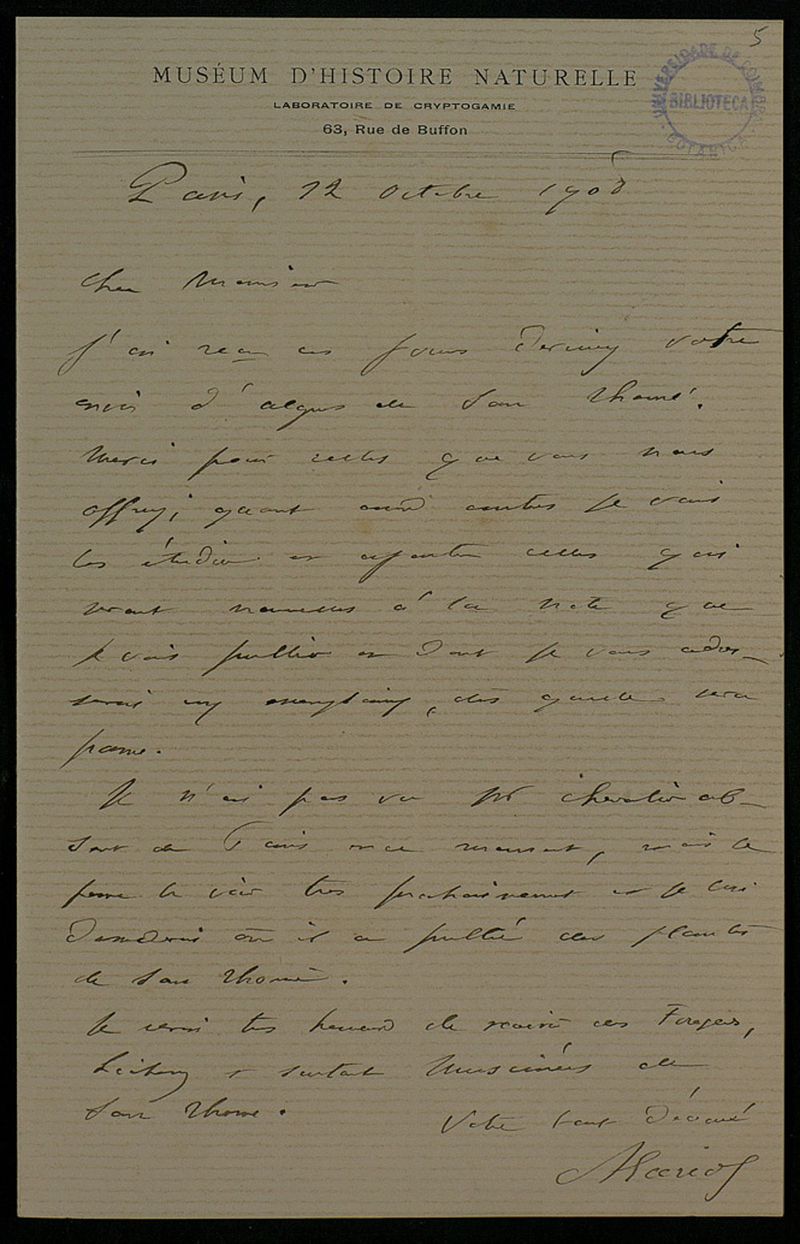 5
MUSÉUM D'HISTOIRE NATURELLE
LABORATOIRE DE CRYPTOGAMIE
63, Rue de Buffon
UNIVERSIDADE DE COIMBRA
BIBLIOTECA
BOTANICA
Paris, 12 octobre 1908
Cher Monsieur
J'ai reçu ces jours derniers votre
envoi d'algues de San Thomé.
Merci pour celles que vous nous
offrez; quant aux autres je vais
les étudier et ajouter celles qui
seront nouvelles à la note que
je vais publier et dont je vous adres-
serai un exemplaire, dès qu'elle sera
parue.
Je n'ai pas vu Mr Chevalier ab-
sent de Paris en ce moment, mais je
pense le voir très prochainement et je lui
demanderai où il a publié des plantes
de San Thomé.
Je serai très heureux de recevoir des Fougères,
Lichens et surtout Muscinées de
San Thomé.
Votre tout dévoué
P Hariot